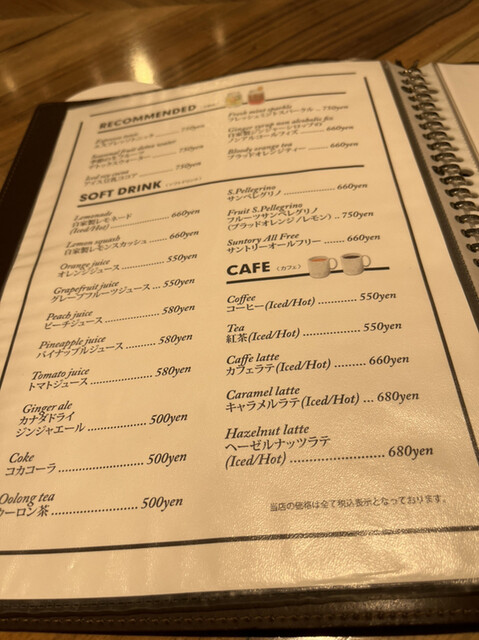 RECOMMENDED
750yen
Seasonal fruit detox water
750yen
Iced soy cocoa
アイス豆乳ココア
750yen
Fresh mint sparkle
フレッシュミントスパークル .. 750yen
Ginger syrup non alcoholic fizz
自家製ジンジャーシロップの
ノンアルコールフィズ
660yen
Bloody orange tea
ブラッドオレンジティー
660yen
SOFT DRINK
(ソフトドリンク)
Lemonade
自家製レモネード
(Iced/Hot)
660yen
Lemon squash
自家製レモンスカッシュ
660yen
Orange juice
オレンジジュース
550yen
Grapefruit juice
グレープフルーツジュース
550yen
Peach juice
ピーチジュース
580yen
Pineapple juice
パイナップルジュース
580yen
Tomato juice
トマトジュース
580yen
Ginger ale
カナダドライ
ジンジャエール
500yen
Coke
コカコーラ
500yen
Oolong tea
ウーロン茶
500yen
S.Pellegrino
サンペレグリノ
660yen
Fruit S.Pellegrino
フルーツサンペレグリノ
(ブラッドオレンジ/レモン) .. 750yen
Suntory All Free
サントリーオールフリー
660yen
CAFE (カフェ)
Coffee
コーヒー(Iced/Hot)
550yen
Tea
紅茶(Iced/Hot)
550yen
Caffe latte
カフェラテ(Iced/Hot)
660yen
Caramel latte
キャラメルラテ(Iced/Hot) ... 680yen
Hazelnut latte
ヘーゼルナッツラテ
(Iced/Hot)
680yen
当店の価格は全て税込表示となっております。